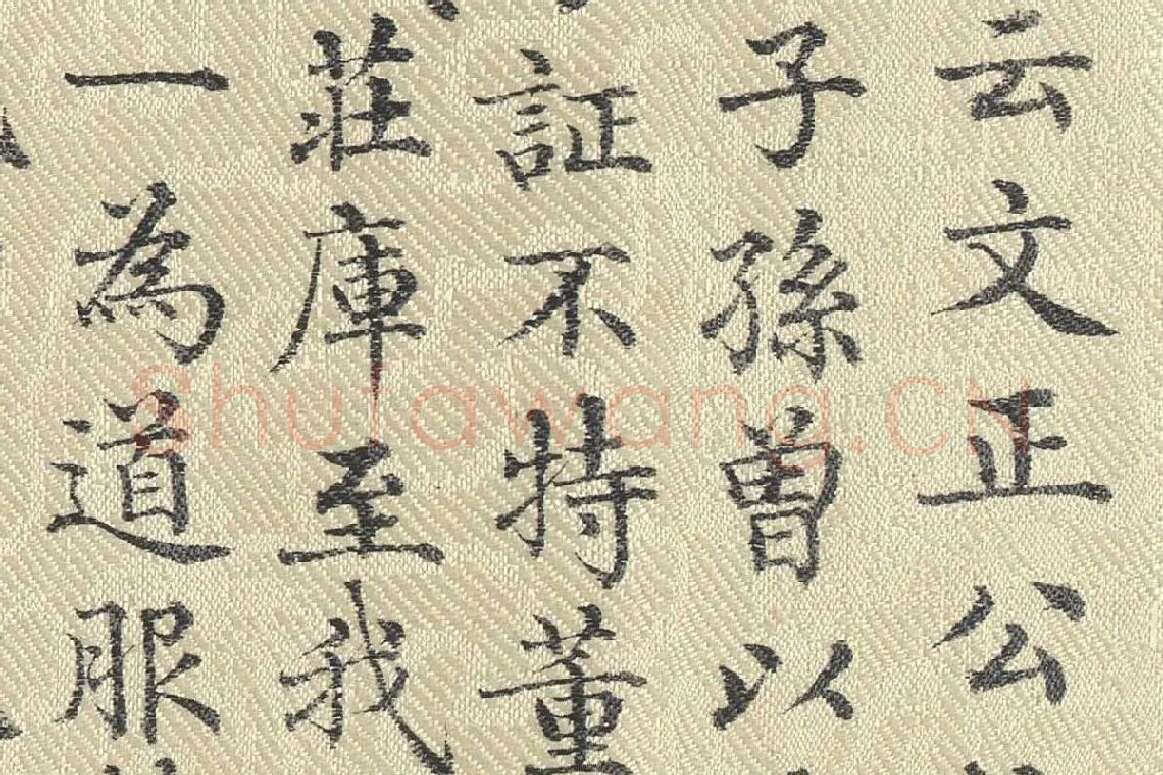 云文正公
子孫曾以
証不特董
莊庫至我
一為道服
Shufawang.cn